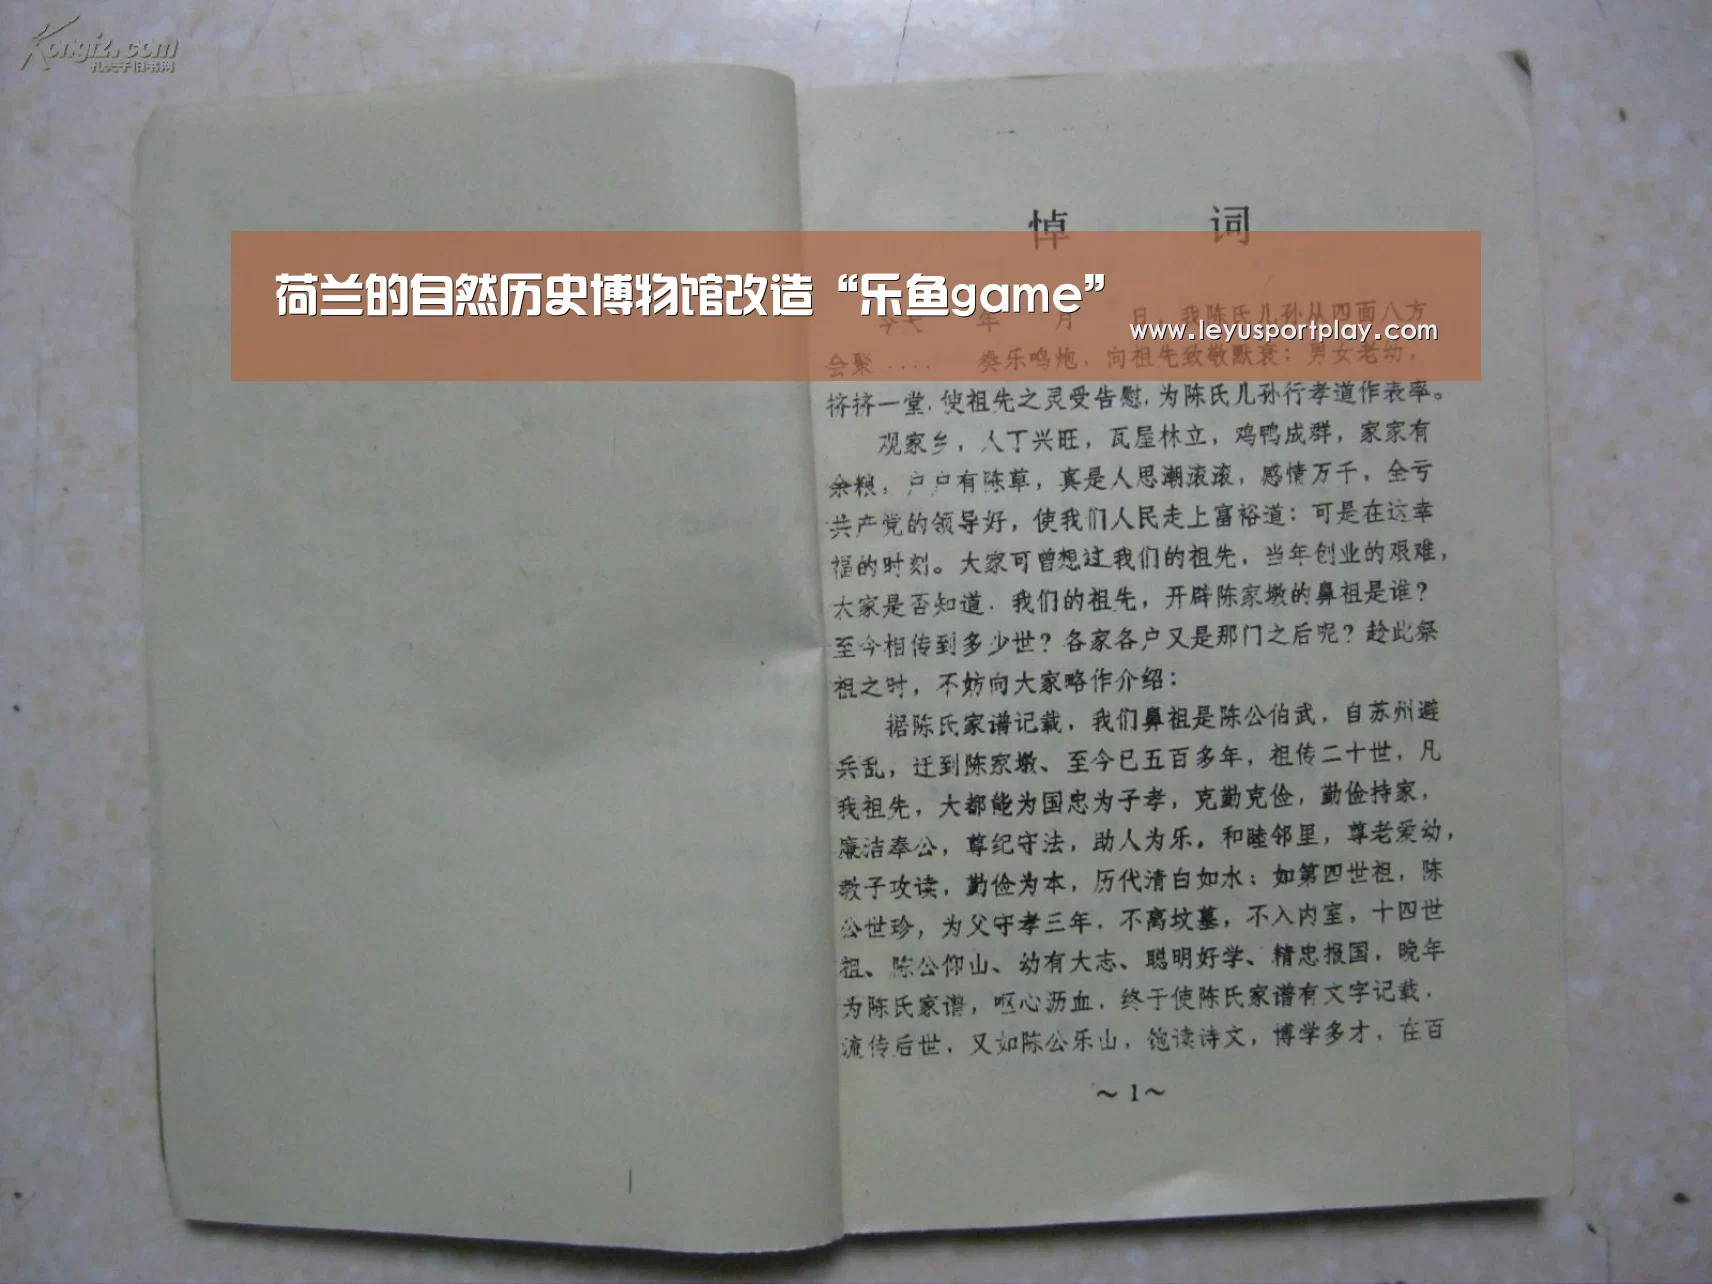 Kongfz.com
孔夫子旧书网
悼 词
荷兰的自然历史博物馆改造“乐鱼game”
www.leyusportplay.com
今天 年 月 日，我陈氏儿孙从四面八方
会聚 .... 奏乐鸣炮，向祖先致敬默哀；男女老幼，
挤挤一堂，使祖先之灵受告慰，为陈氏儿孙行孝道作表率。
观家乡，人丁兴旺，瓦屋林立，鸡鸭成群，家家有
余粮，户户有陈草，真是人思潮滚滚，感情万千，全亏
共产党的领导好，使我们人民走上富裕道：可是在这幸
福的时刻。大家可曾想过我们的祖先，当年创业的艰难，
大家是否知道．我们的祖先，开辟陈家墩的鼻祖是谁？
至今相传到多少世？各家各户又是那门之后呢？趁此祭
祖之时，不妨向大家略作介绍：
据陈氏家谱记载，我们鼻祖是陈公伯武，自苏州避
兵乱，迁到陈家墩、至今已五百多年，祖传二十世，凡
我祖先，大都能为国忠为子孝，克勤克俭，勤俭持家，
廉洁奉公，尊纪守法，助人为乐，和睦邻里，尊老爱幼，
教子攻读，勤俭为本，历代清白如水；如第四世祖，陈
公世珍，为父守孝三年．不离坟墓，不入内室，十四世
祖、陈公仰山、幼有大志、聪明好学、精忠报国，晚年
为陈氏家谱，呕心沥血．终于使陈氏家谱有文字记载．
流传后世，又如陈公乐山，饱读诗文，博学多才，在百
～1～